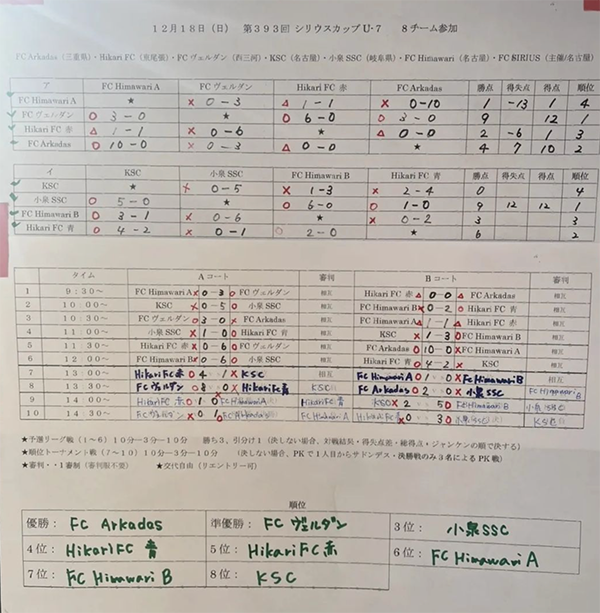 12月18日（日） 第393回 シリウスカップU-7 8チーム参加
FC Arkadas（三重県）・Hikari FC（魚尾張）・FC ヴェルダン（西三河）・KSC（名古屋）・小泉 SSC（岐阜県）・FC Himawari（名古屋）・FC SIRIUS（主催/名古屋）
ア FC Himawari A FC ヴェルダン Hikari FC 赤 FC Arkadas 勝点 得失点 得点 順位
FC Himawari A ★ × 0-3 △ 1-1 × 0-10 1 -13 1 4
FC ヴェルダン O 3-0 ★ O 6-0 O 3-0 9 12 1
Hikari FC 赤 △ 1-1 × 0-6 ★ △ 0-0 2 -6 1 3
FC Arkadas O 10-0 × 0-3 △ 0-0 ★ 4 7 10 2
イ KSC 小泉 SSC FC Himawari B Hikari FC 青 勝点 得失点 得点 順位
KSC ★ × 0-5 × 1-3 × 2-4 0 4
小泉 SSC O 5-0 ★ O 6-0 O 1-0 9 12 12 1
FC Himawari B O 3-1 × 0-6 ★ × 0-2 3 3
Hikari FC 青 O 4-2 × 0-1 O 2-0 ★ 6 2
タイム Aコート 審判 Bコート 審判
1 9:30～ FC Himawari A × 0-3 O FC ヴェルダン 相互 Hikari FC 赤 △ 0-0 △ FC Arkadas 相互
2 10:00～ KSC × 0-5 O 小泉 SSC 相互 FC Himawari B × 0-2 O Hikari FC 青 相互
3 10:30～ FC ヴェルダン O 3-0 × FC Arkadas 相互 FC Himawari A △ 1-1 △ Hikari FC 赤 相互
4 11:00～ 小泉 SSC O 1-0 × Hikari FC 青 相互 KSC × 1-3 O FC Himawari B 相互
5 11:30～ Hikari FC 赤 × 0-6 O FC ヴェルダン 相互 FC Arkadas O 10-0 × FC Himawari A 相互
6 12:00～ FC Himawari B × 0-6 O 小泉 SSC 相互 Hikari FC 青 O 4-2 × KSC 相互
7 13:00～ Hikari FC 赤 O 4 1 × KSC 相互 FC Himawari A O 1 0 × FC Himawari B 相互
8 13:30～ FC ヴェルダン O 8 0 × Hikari FC 青 KSC FC Arkadas O 2 0 × 小泉 SSC FC Himawari B
9 14:00～ Hikari FC 赤 O 1 0 × FC Himawari A Hikari FC 青 KSC × 2 5 O FC Himawari B 小泉 SSC
10 14:30～ FC ヴェルダン × 0 1 O FC Arkadas FC Himawari A Hikari FC 青 0 3 O 小泉 SSC KSC
★予選リーグ戦（1～6）10分―3分―10分 勝ち3、引分け1（決しない場合、対戦結果・得失点差・総得点・ジャンケンの順で決する）
★順位トーナメント戦（7～10）10分―3分―10分 （決しない場合、PKで1人目からサドンデス・決勝戦のみ3名によるPK戦）
★審判・・1審制（審判服不要） ★交代自由（リエントリー可）
順位
優勝： FC Arkadas 準優勝： FC ヴェルダン 3位： 小泉SSC
4位： Hikari FC 青 5位： Hikari FC 赤 6位： FC Himawari A
7位： FC Himawari B 8位： KSC